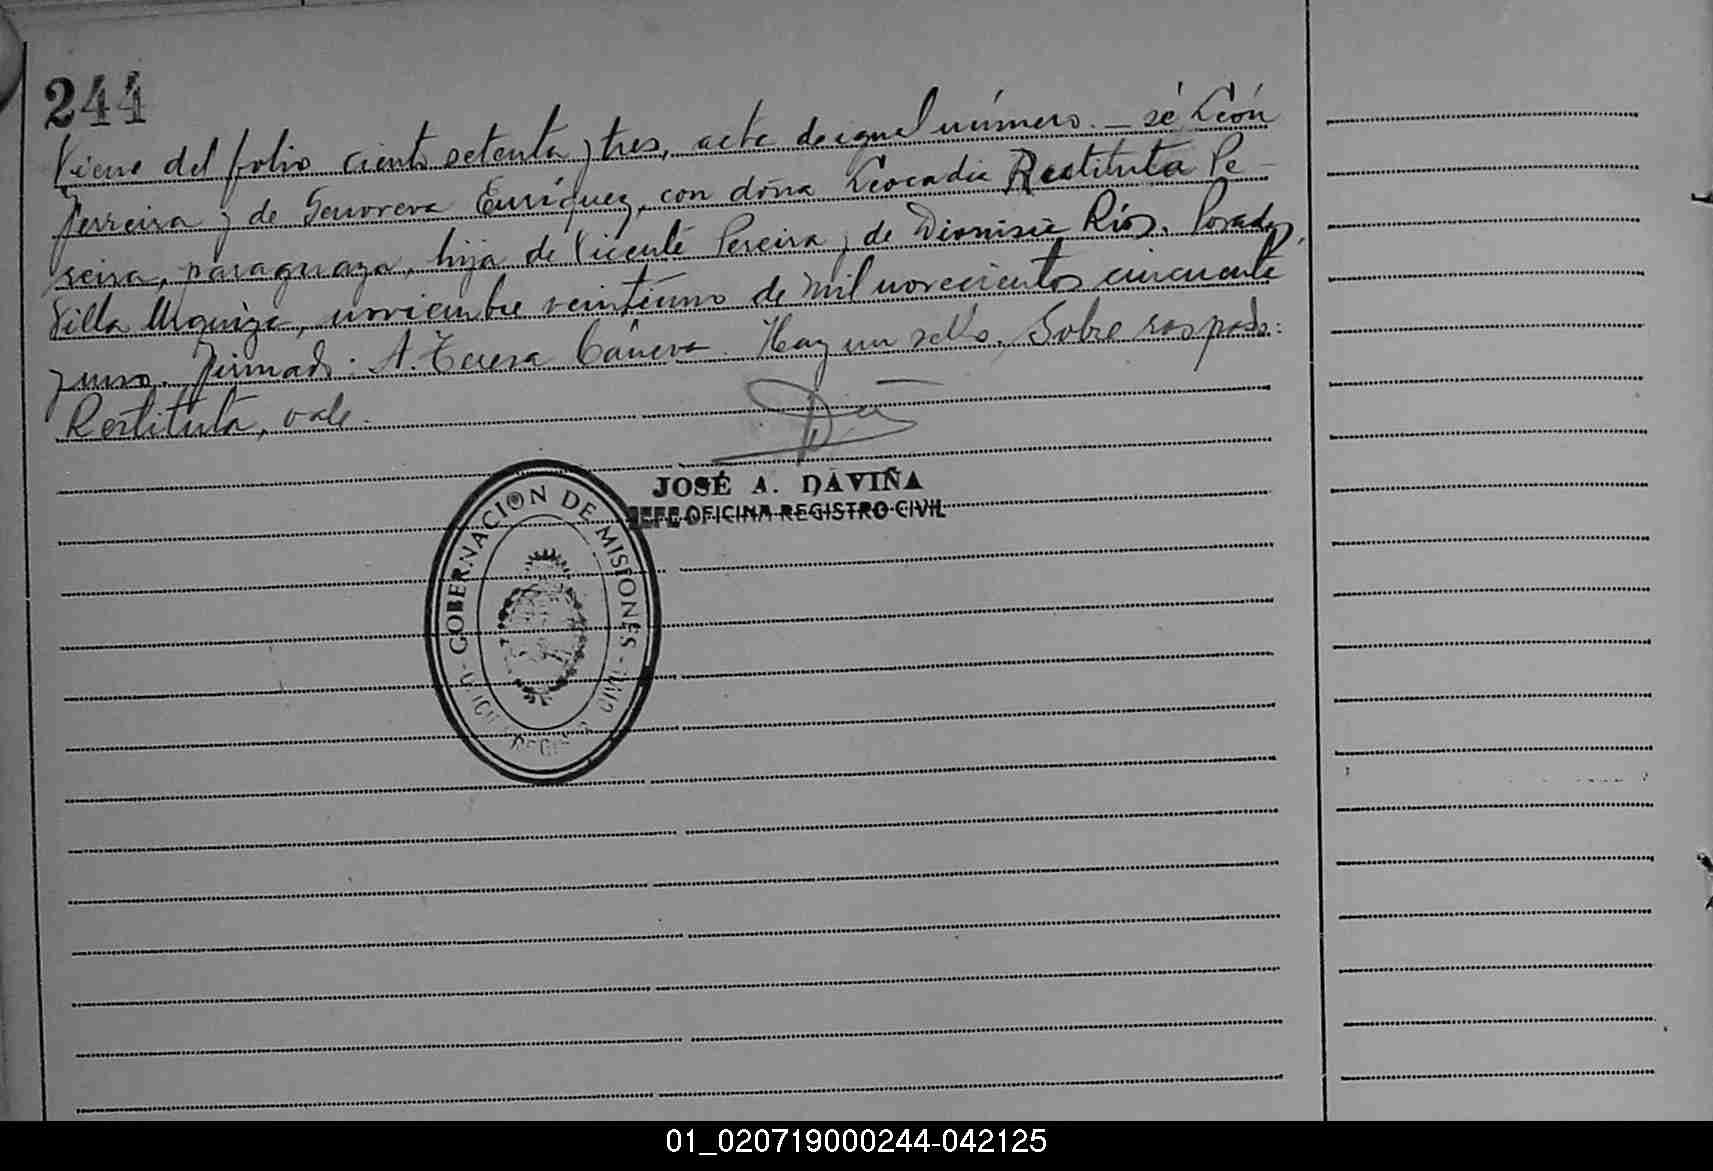 244
Viene del folio ciento setenta y tres, acta de igual número. — sé León
Ferreira y de Genoveva Enríquez, con doña Leocadia Restituta Pe-
reira, paraguaya, hija de Vicente Pereira y de Dionisia Ríos. Posadas,
Villa Urquiza, noviembre veintiuno de mil novecientos cincuenta
y uno. Firmado: A. Teresa Cánova. Hay un sello. Sobre raspado:
Restituta, vale.
JOSÉ A. DAVIÑA
JEFE OFICINA REGISTRO CIVIL
GOBERNACION DE MISIONES
01_020719000244-042125